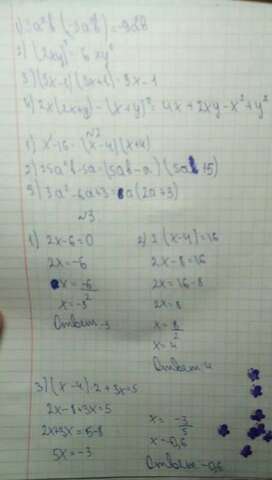 1) 3a²b (-3a³b) = -9ab
2) (2xy)³ = 6xy⁶
3) (3x-1)(3x+1) - 9x-1
4) 2x(2x+y) - (x+y)² = 4x + 2xy - x² + y²
№2
1) x²-16 = (x-4)(x+4)
2) 25a²b-5a = (5ab-a) (5ab+5)
3) 3a²-6a+3 = a(2a+3)
№3
1) 2x-6=0
2x=-6
x = -6/2
x = -3
Ответ -3
2) 2(x-4)=16
2x-8=16
2x=16-8
2x=8
x = 8/2
x=4
Ответ 4
3) (x-4)·2+3x=5
2x-8+3x=5
2x+3x=5-8
5x=-3
x = -3/5
x=-0,6
Ответ -0,6